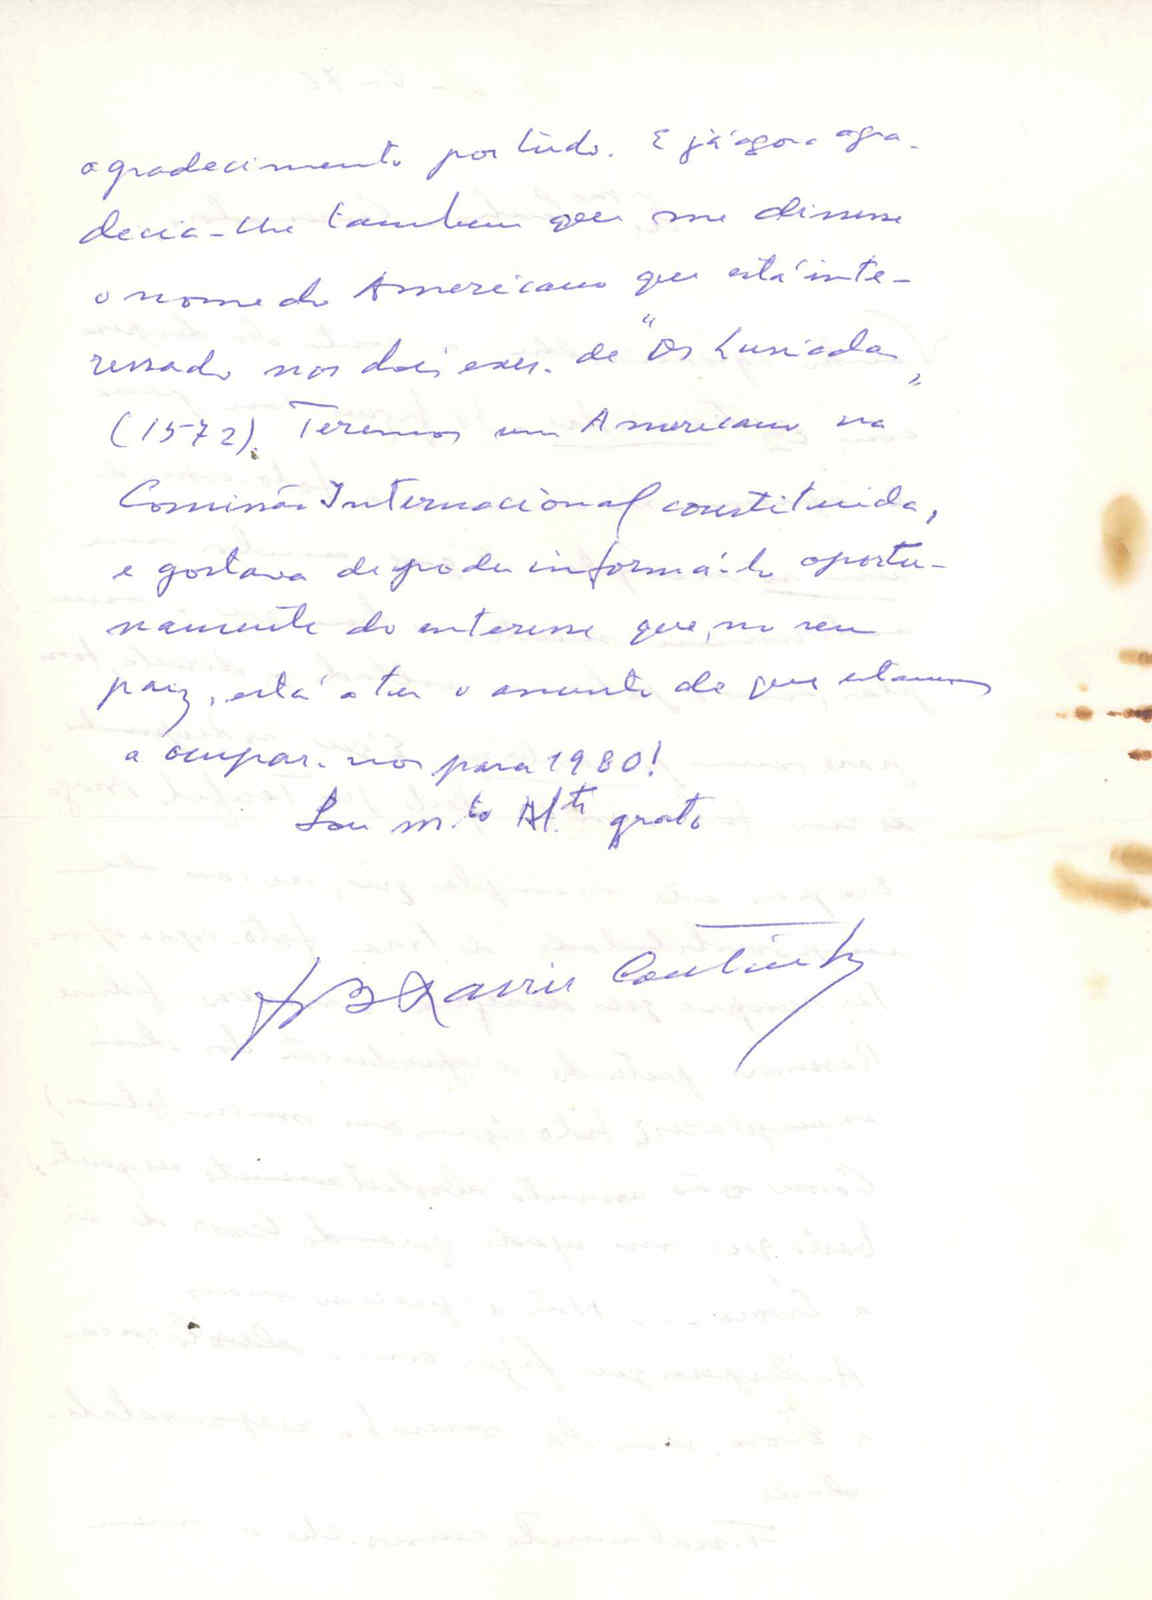 agradecimento por tudo. E já agora agra-
decia-lhe tambem que me dissesse
o nome do Americano que está inte-
ressado nos dois exs. de "Os Lusiadas"
(1572). Teremos um Americano na
Comissão Internacional constituida,
e gostava de poder informá-lo oportu-
namente do interesse que, no seu
paiz, está a ter o assunto de que estamos
a ocupar-nos para 1980!
Sou m.to At.te grato
B Xavier Coutinho